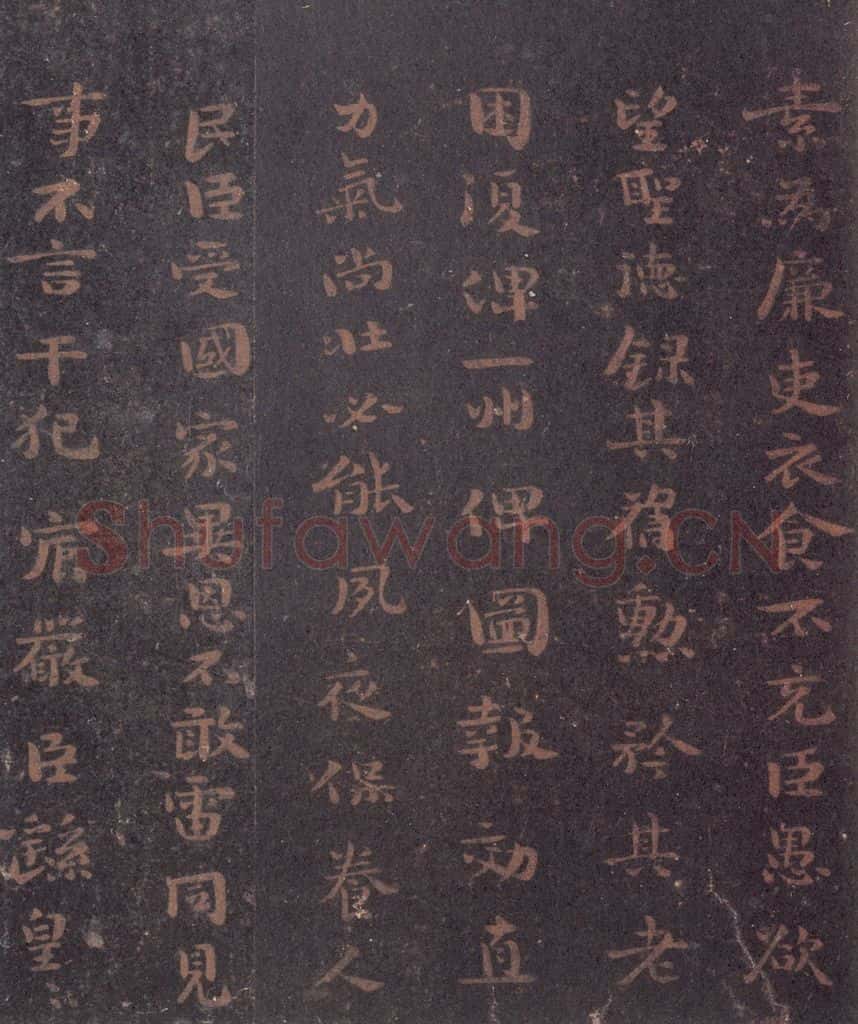 素為廉吏衣食不充臣愚欲
望聖德錄其舊勳矜其老
困復俾一州俾圖報効直
力氣尚壯必能夙夜保養人
民臣受國家異恩不敢雷同見
事不言干犯宸嚴臣繇皇
Shufawang.CN